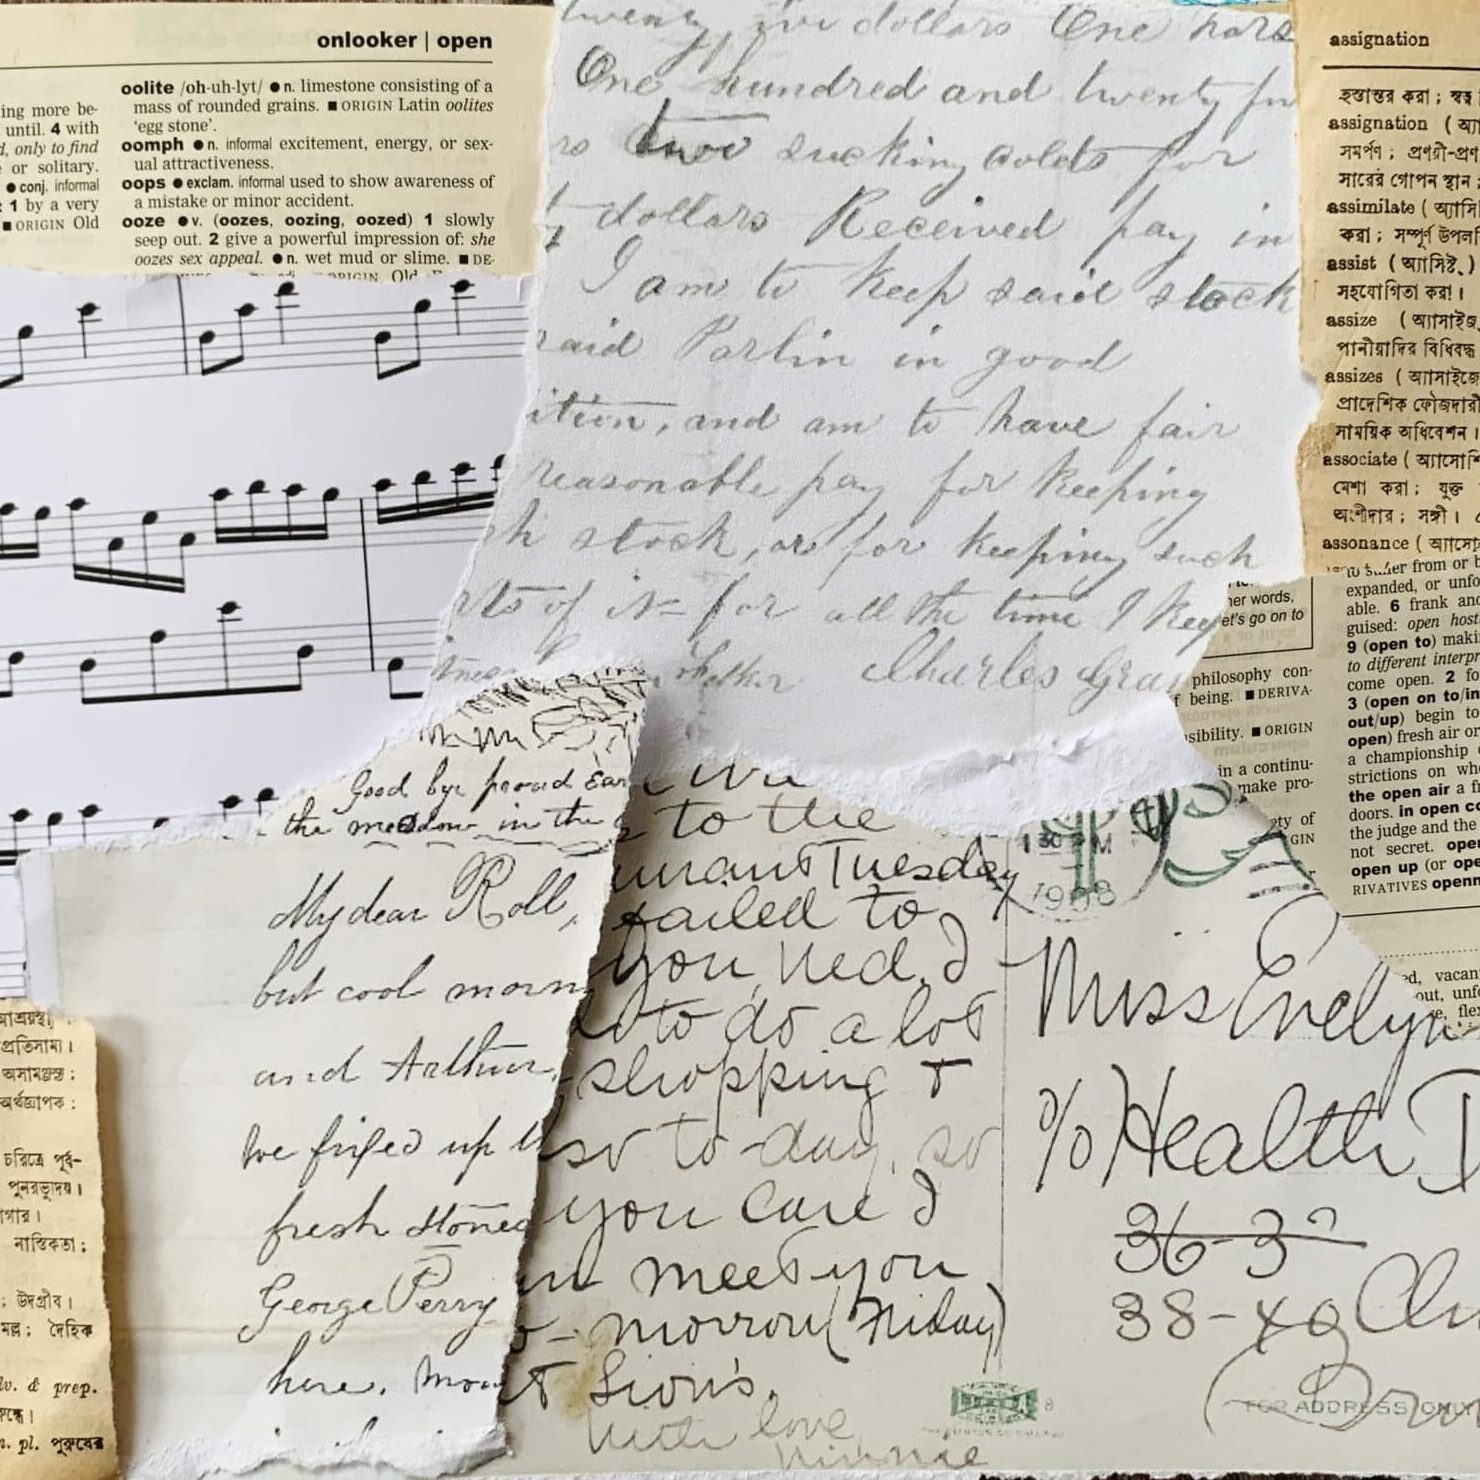 onlooker | open
oolite /oh-uh-lyt/ ● n. limestone consisting of a
mass of rounded grains. ■ ORIGIN Latin oolites
'egg stone'.
oomph ● n. informal excitement, energy, or sex-
ual attractiveness.
oops ● exclam. informal used to show awareness of
a mistake or minor accident.
ooze ● v. (oozes, oozing, oozed) 1 slowly
seep out. 2 give a powerful impression of: she
oozes sex appeal. ● n. wet mud or slime. ■ DE-
ORIGIN Old
ing more be-
until. 4 with
only to find
or solitary.
● conj. informal
1 by a very
■ ORIGIN Old
dollars One hors
One hundred and twenty
two sucking colts for
dollars Received pay in
I am to keep said stock
said Parlin in good
ition, and am to have fair
reasonable pay for keeping
stock, or for keeping such
of it for all the time I keep
Charles Gra
assignation
হস্তান্তর করা ; স্বত্ব
assignation ( অ্যা
সমর্পণ ; প্রণয়ী-প্রণ
সারের গোপন স্থান ;
assimilate ( অ্যাসি
করা ; সম্পূর্ণ উপলব্ধি
assist ( অ্যাসিস্ট্ )
সহযোগিতা করা ।
assize ( অ্যাসাইজ্
পানীয়াদির বিধিবদ্ধ
assizes ( অ্যাসাইজে
প্রাদেশিক ফৌজদারী
সাময়িক অধিবেশন ।
associate ( অ্যাসোশি
মেশা করা ; যুক্ত
অংশীদার ; সঙ্গী ।
assonance ( অ্যাসো
her words,
et's go on to
philosophy con-
of being. ■ DERIVA-
sibility. ■ ORIGIN
in a continu-
make pro-
ety of
GIN
suffer from or b
expanded, or unfo
able. 6 frank and
guised: open host
9 (open to) maki
to different interpr
come open. 2 fo
3 (open on to/in
out/up) begin to
open) fresh air or
a championship
strictions on wh
the open air a fr
doors. in open co
the judge and the
not secret. open
open up (or ope
RIVATIVES openn
ed, vacan
out, unfo
e, flex
Good bye proud
the meadow in the
My dear Roll,
but cool morn
and Arthur,
we fixed up
fresh stones
George Perry
here.
to the
Tuesday
failed to
you, Ned. I
to do a lot
shopping +
so to-day, so
you care I
meet you
morrow (Friday)
at Sion's.
With love,
Minnie
30 PM
1908
Miss Evelyn
c/o Health
36-3
38-40
FOR ADDRESS ONLY
প্রতিসাম্য ।
অসামঞ্জস্য :
অর্থজ্ঞাপক :
চরিত্রে পূর্ব-
পুনরভ্যুদয় ।
গার ।
নাস্তিকতা ;
; উদগ্রীব ।
মল্ল ; দৈহিক
dv. & prep.
n. pl. পুরুষের